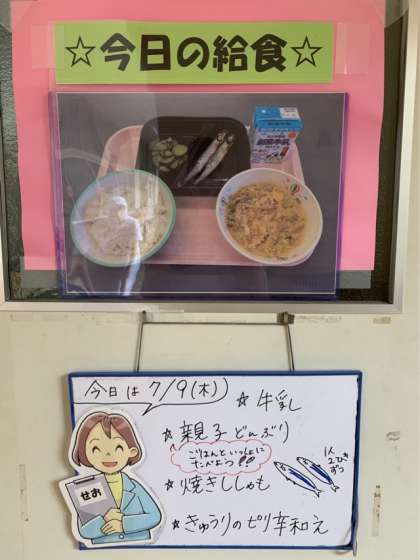 ☆今日の給食☆
今日は 7/9(木)
☆牛乳
☆親子どんぶり
ごはんといっしょに
たべよう!!
☆焼きししゃも
1人
2ひき
ずつ
☆きゅうりのピリ辛和え
せお